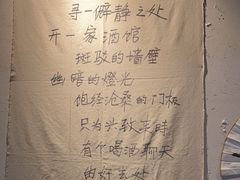 寻一僻静之处
开一家酒馆
斑驳的墙壁
幽暗的灯光
饱经沧桑的门板
只为兴致来时
有个喝酒聊天
的好去处